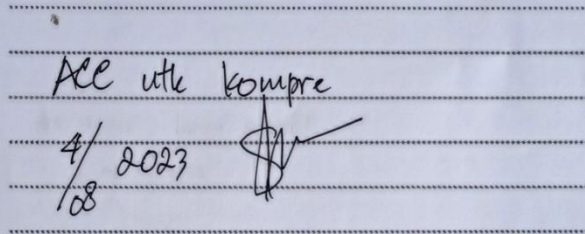 ACC utk kompre
4/08 2023